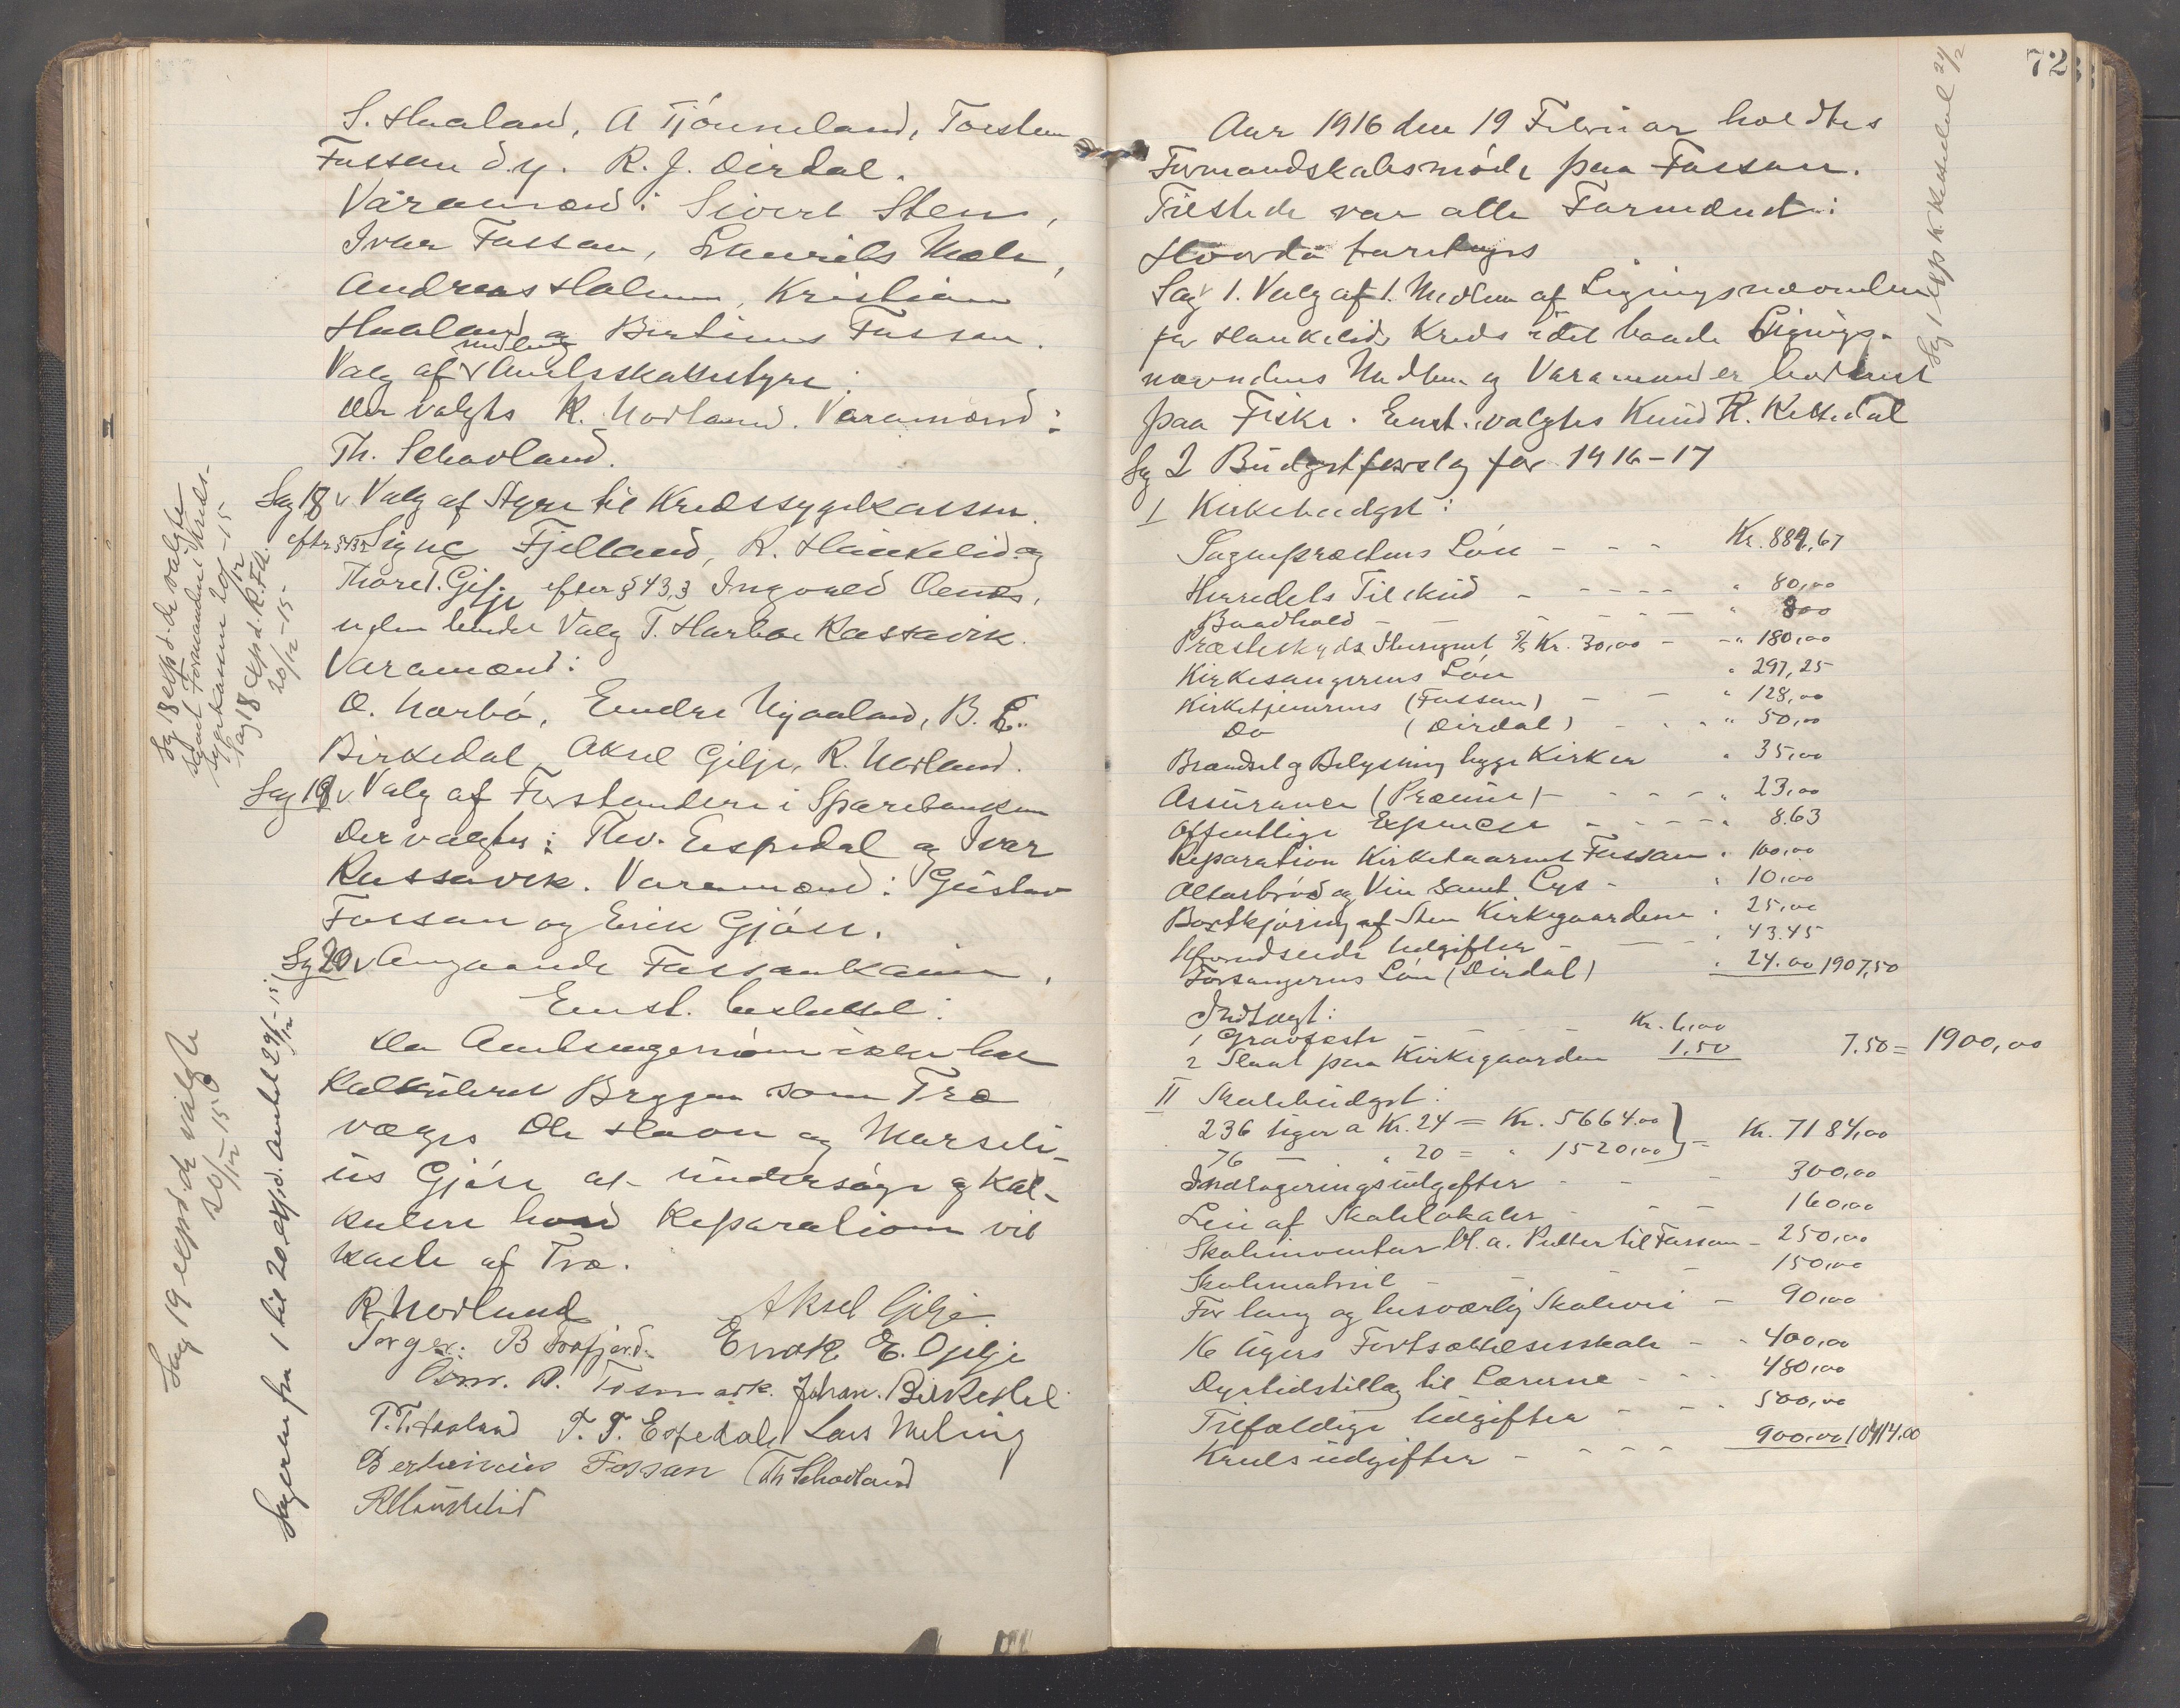 S. Haaland, A Tjönneland, Torsten
Fossan d.y. R. J. Dirdal.
Varamænd: Sivert Sten,
Ivar Fossan, Mele,
Andreas Holmen, Kristian
Haaland og Bertinus Fossan.
Valg af medlem Amtsskattestyre:
Der valgtes R. Norland. Varamænd:
Th. Schovland.
Sag 18 v Valg af Styre til Kredssygekassen.
efter § 43,2 Signe Fjelland, R. Haukelid og
Thored. Gilje efter § 43,3 Ingvald Oenes,
uden bundet Valg T. Harboe Rassavik.
Varamænd:
O. Norbö, Endre Nyaaland, B. E.
Birkedal, Aksel Gilje, R. Norland.
Sag 19 v Valg af Forstandere i Sparebanken
Der valgtes: Thv. Espedal og Ivar
Rassavik. Varamænd: Gustav
Fossan og Erik Gjöse.
Sag 20 v Angaaende Fossankaien.
Enst. besluttet:
Da Amtsingeniören ikke har
kalkuleret Bryggen som Træ
vælges Ole Haavn og Marseli-
us Gjöse at undersöge og kal-
kulere hvad Reparationen vil
koste af Træ.
R Norland Aksel Gilje
Torger. B Frafjord. Enok E. Gilje
Osm. R. Tosmork. Johan. Birkedal
T. T. Haaland T. T. Espedal Lars Meling
Bertinius Fossan Th Schovland
R Haukelid
Sag 18 expd. de valgte
samt Formanden i Kreds-
sygekassen 20/12-15
Sag 18 expd. R.Fd.
20/12-15-
Sag 19 expd. de valgte
20/12-15
Sagerne fra 1 til 20 expd. amtet 29/12-15
72
Sag 1 exp K. Kettedal 24/2
Aar 1916 den 19 Februar holdtes
Formandskabsmöde paa Fossan.
Tilstede var alle Formænd:
Hvorda foretoges
Sag 1. Valg af 1. Medlem af Ligningsnævnden
for Haukelid Kreds idet baade Lignings-
nævndens Medlem og Varamand er bortreist
paa Fiske. Enst. valgtes Knud R. Kettedal
Sag 2 Budgetforslag for 1916-17
I Kirkebudget:
Sognepræstens Lön - - - Kr. 889,67
Herredets Tilskud - - - - - " 80,00
Baadhold - - - - - " 800
Præsteskyds Kr. 30,00 - - " 180,00
Kirkesangerens Lön " 297,25
Kirketjenerens (Fossan) - - " 128,00
Do (Dirdal) - - - " 50,00
Brændsel og Belysning begge Kirker " 35,00
Assurance (Præmie) - - - - " 23,00
Offentlige Expencer - - - - " 8.63
Reparation Kirketaarnet Fossan " 100,00
Altarbröd og Vin samt Lys - " 10,00
Bortkjöring af Sten Kirkegaardene " 25,00
Uforudseede Udgifter - - - " 43.45
Forsangerens Lön (Dirdal) " 24.00 1907,50
Indtægt:
1 Gravfæste - - - - Kr. 6,00
2 Slaat paa Kirkegaarden 1,50 7.50 = 1900,00
II Skolebudget:
236 Uger a Kr. 24 = Kr. 5664.00
76 — " 20 = " 1520,00 } = Kr. 7184,00
Indlogeringsudgifter - - - 300,00
Leie af Skolelokaler - - - 160,00
Skoleinventar bl. a. Pulter til Fossan - 250,00
Skolemateriel - - - 150,00
For lang og besværlig Skolevei - 90,00
16 Ugers Fortsættelsesskole - - 400,00
Dyrtidstillæg til Lærerne - - - 480,00
Tilfældige Udgifter - - - 500,00
Kredsudgifter - - - - 900,00 10414.00